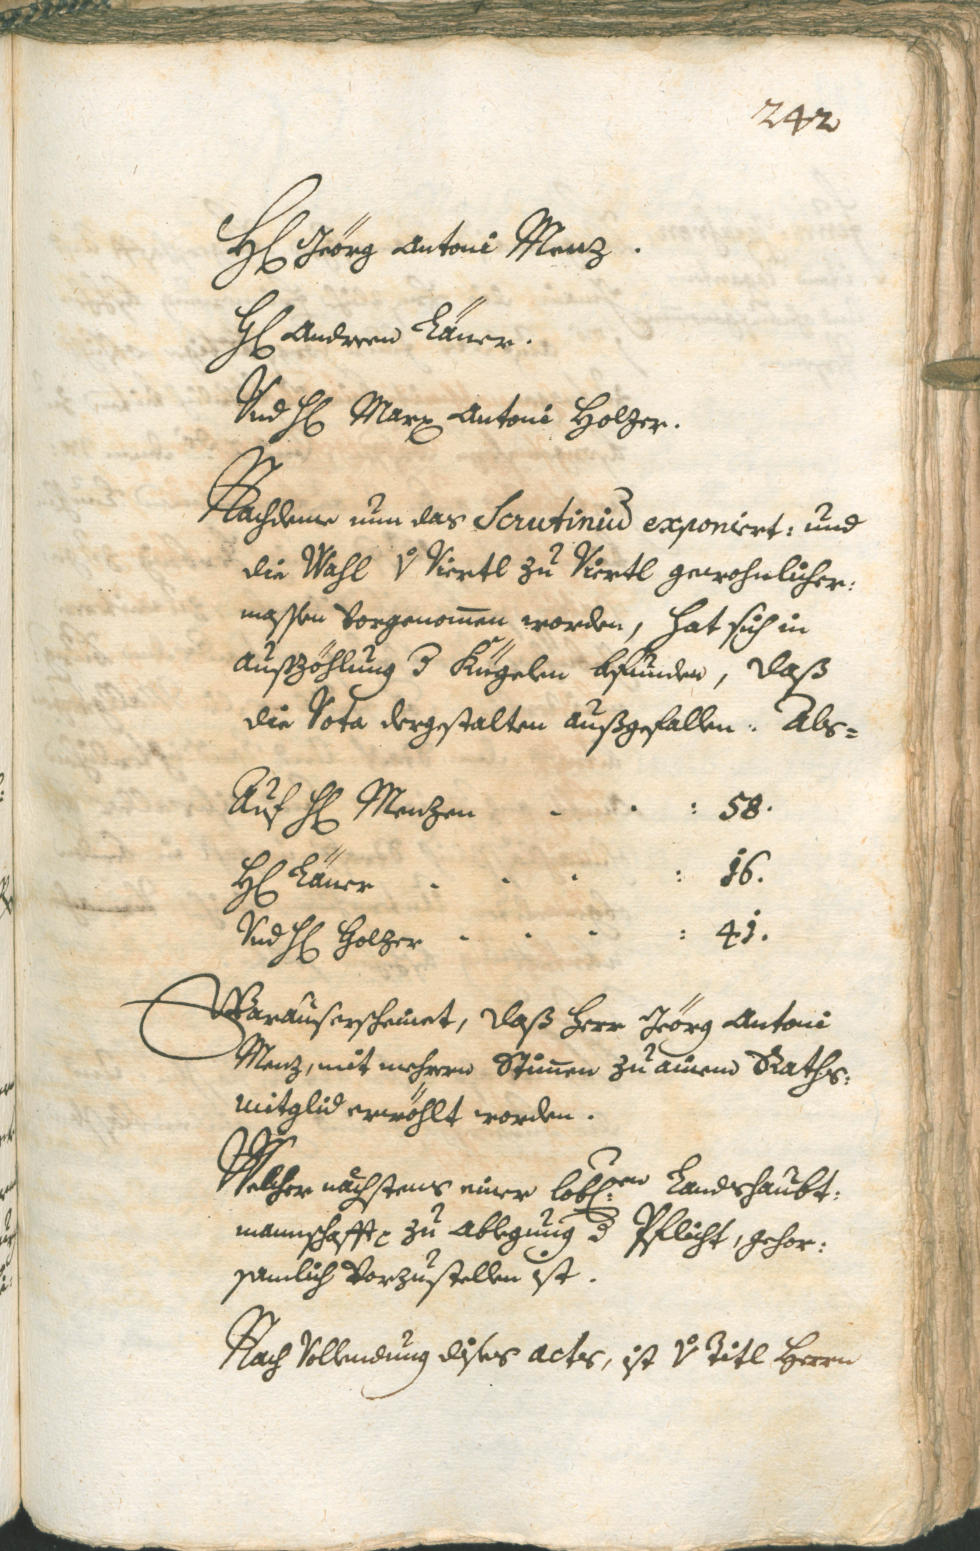 242
H. Jeörg Antoni Menz.
H. Andreen Läner.
Und H. Marx Antoni Holzer.
Nachdeme nun das Scrutiniũ exponiert: und
die Wahl v̊ Viertl zu Viertl gewohnlicher:
massen vorgenom̅en worden, hat sich in
außzöhlung d Kügelen befunden, daß
die Vota dergestalten außgefallen: Als=
Auf H. Menzen - - : 58.
H. Läner - - - : 16.
Und H. Holzer - - - : 41.
Warauß erscheinet, daß Herr Jeörg Antoni
Menz, mit mehrern Stim̅en zu ainem Raths:
mitglid erwöhlt worden.
Welcher nächstens einer löbl:en Landshaubt:
mannschafft zu ablegung d Pflicht, gehor:
samlich vorzustellen ist.
Nach Vollendung dises acts, ist v̊ Titl Herrn